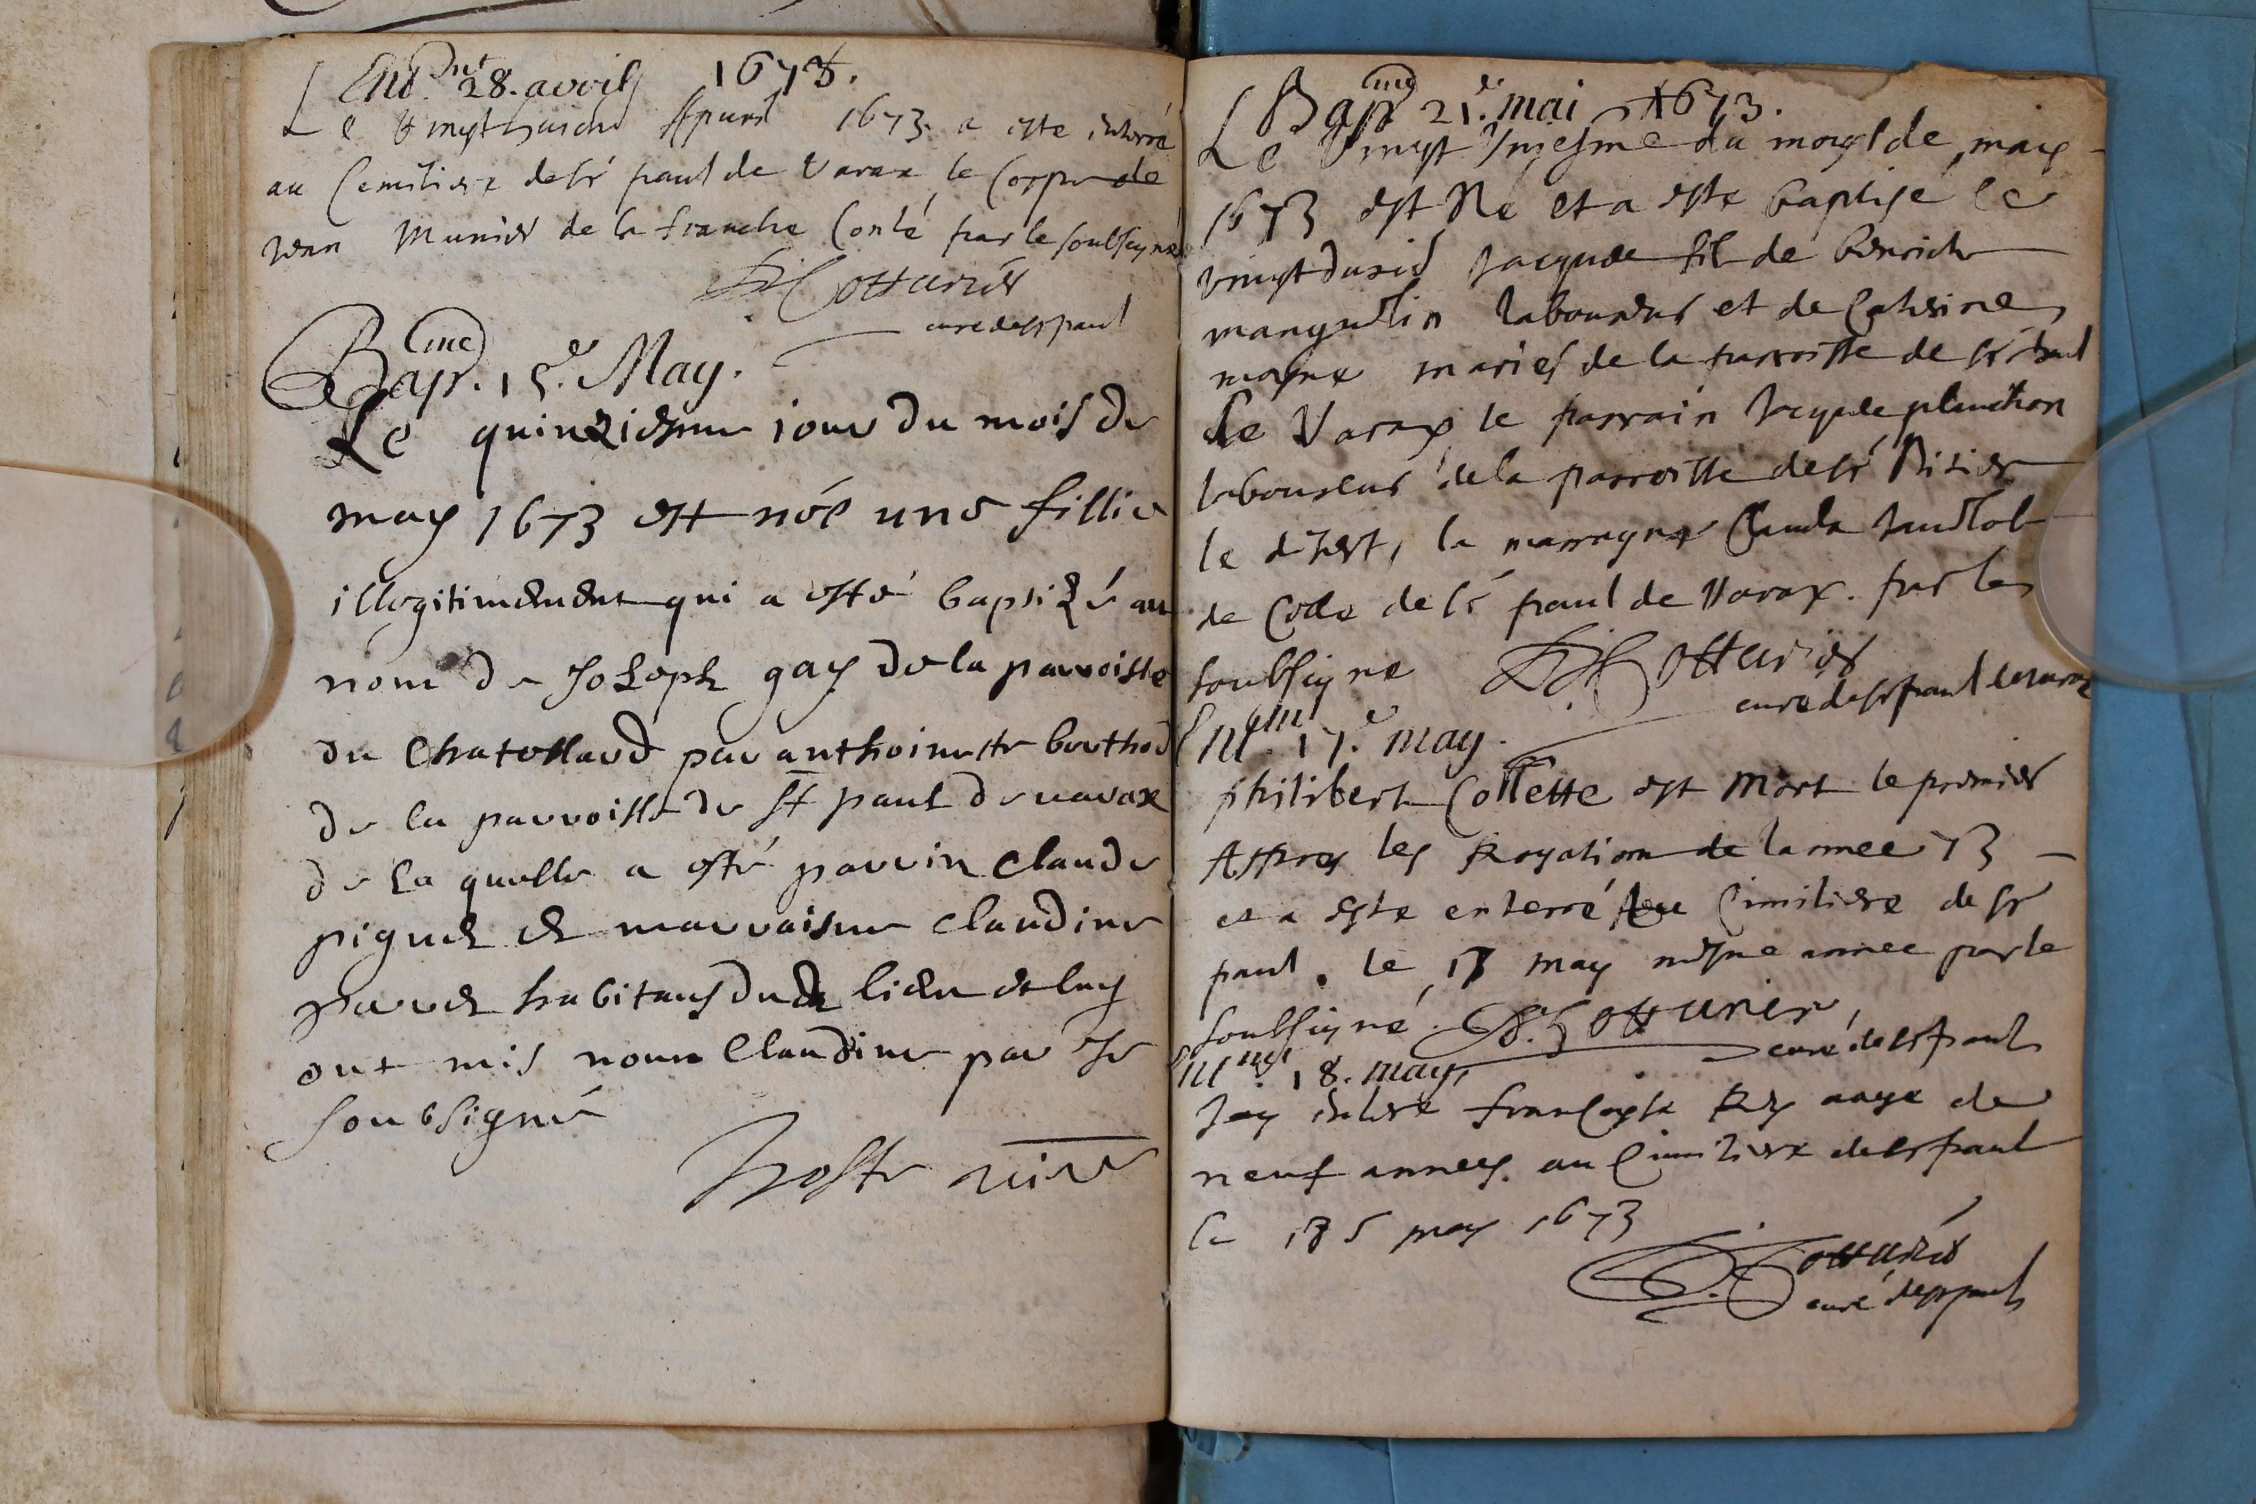 Ent. 28. avril 1673.
Le vingt huictie Apuril 1673. a este enterré
au Cemitiere de st paul de Varax le Corps de
Jean Munier de la franche Conté par le soubsigné
Cotturier
cure de st paul
Bap. 15e. May.
Le quinziesme iour du mois de
may 1673 est née une fillie
illegitimement qui a esté baptizée au
nom de Joseph gay de la parroisse
du Chatellard par anthoinette berthod
de la parroisse de st paul de varax
de la quelle a esté parrin Claude
piguet et marraisne Claudine
paret habitans dud lieu et luy
ont mis nom Claudine par Je
soubsigné
vire
Bapme 21e. mai 1673.
Le vingt du moys de may
1673 est Né et a este baptisé le
vingt Jacques fils de benoict
manguelin laboureur et de Catherine
moyne mariés de la parroisse de st paul
de Varax le parrain Jacques planchon
laboureur de la parroisse de st Didier
la marrayne Clauda
de Code de st paul de Varax. par le
soubsigne Cotturier
cure de st paul de varax
Entm. 17e. may.
philibert Collette est Mort le premier
Appres les Rogations de lannee 73
et a este enterré au Cimitiere de st
paul. le 17 may mesme annee par le
soubsigné. Cotturier,
curé de st paul
Entm. 18. may.
Jay enterré francoyse Rey aage de
neuf annees. au Cimitiere de st paul
le 18 may 1673
Cotturier
curé de st paul